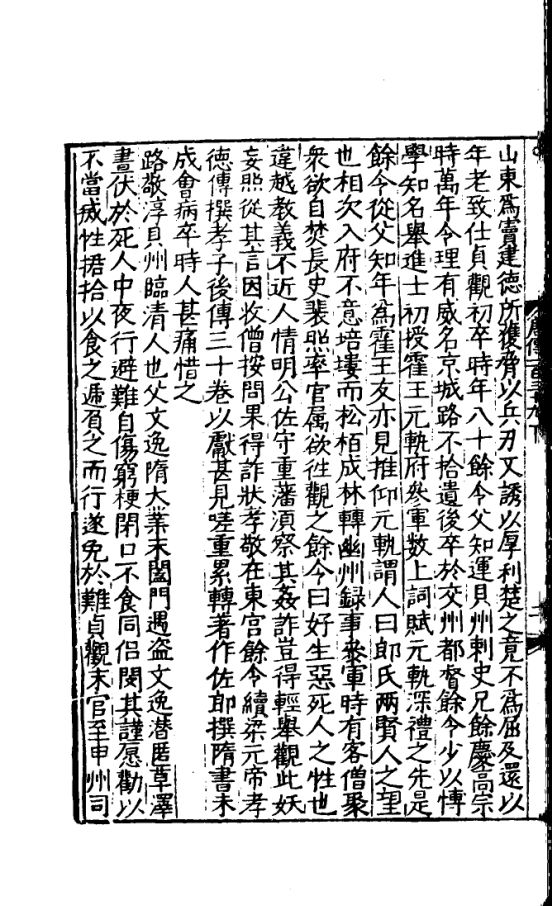 山東爲竇建德所獲脅以兵刃又誘以厚利楚之竟不爲屈及還以
年老致仕貞觀初卒時年八十餘令父知運貝州刺史兄餘慶高宗
時萬年令理有威名京城路不拾遺後卒於交州都督餘令少以博
學知名舉進士初授霍王元軌府參軍數上詞賦元軌深禮之先是
餘令從父知年爲霍王友亦見推仰元軌謂人曰郎氏兩賢人之望
也相次入府不意培塿而松栢成林轉幽州録事參軍時有客僧聚
衆欲自焚長史裴煦率官属欲徃觀之餘令曰好生惡死人之性也
違越教義不近人情明公佐守重藩湏察其姦詐豈得輕舉觀此妖
妄煦從其言因收僧按問果得詐狀孝敬在東宮餘令續梁元帝孝
德傳撰孝子後傳三十卷以獻甚見嗟重累轉著作佐郎撰隋書未
成會病卒時人甚痛惜之
路敬淳貝州臨清人也父文逸隋大業末闔門遇盗文逸潜匿草澤
晝伏於死人中夜行避難自傷窮梗閉口不食同侣閔其謹愿勸以
不當滅性捃拾以食之遞負之而行遂免於難貞觀末官至申州司